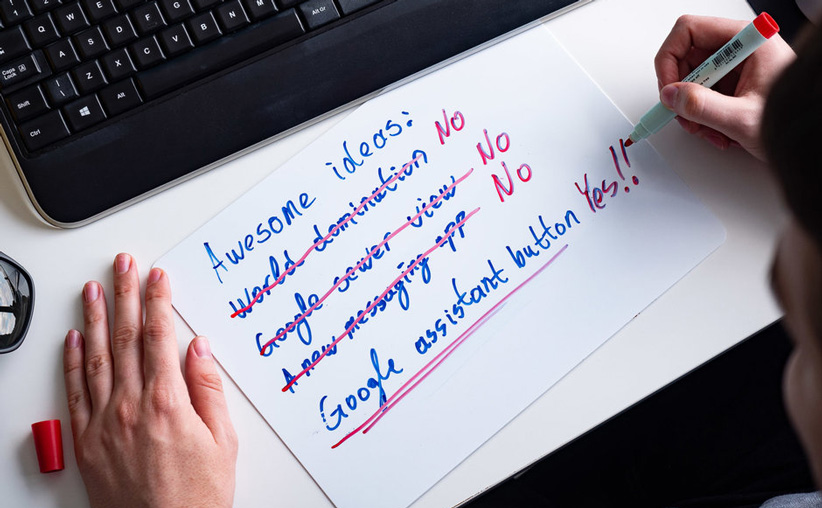 1 2 3
Q W E R T Y U I O P
Caps Lock A S D F G H J K L
Shift Z X C V B N M
Ctrl Alt Alt Gr
Awesome ideas:
World domination No
Google sewer view No
A new messaging app No
Google assistant button Yes!!